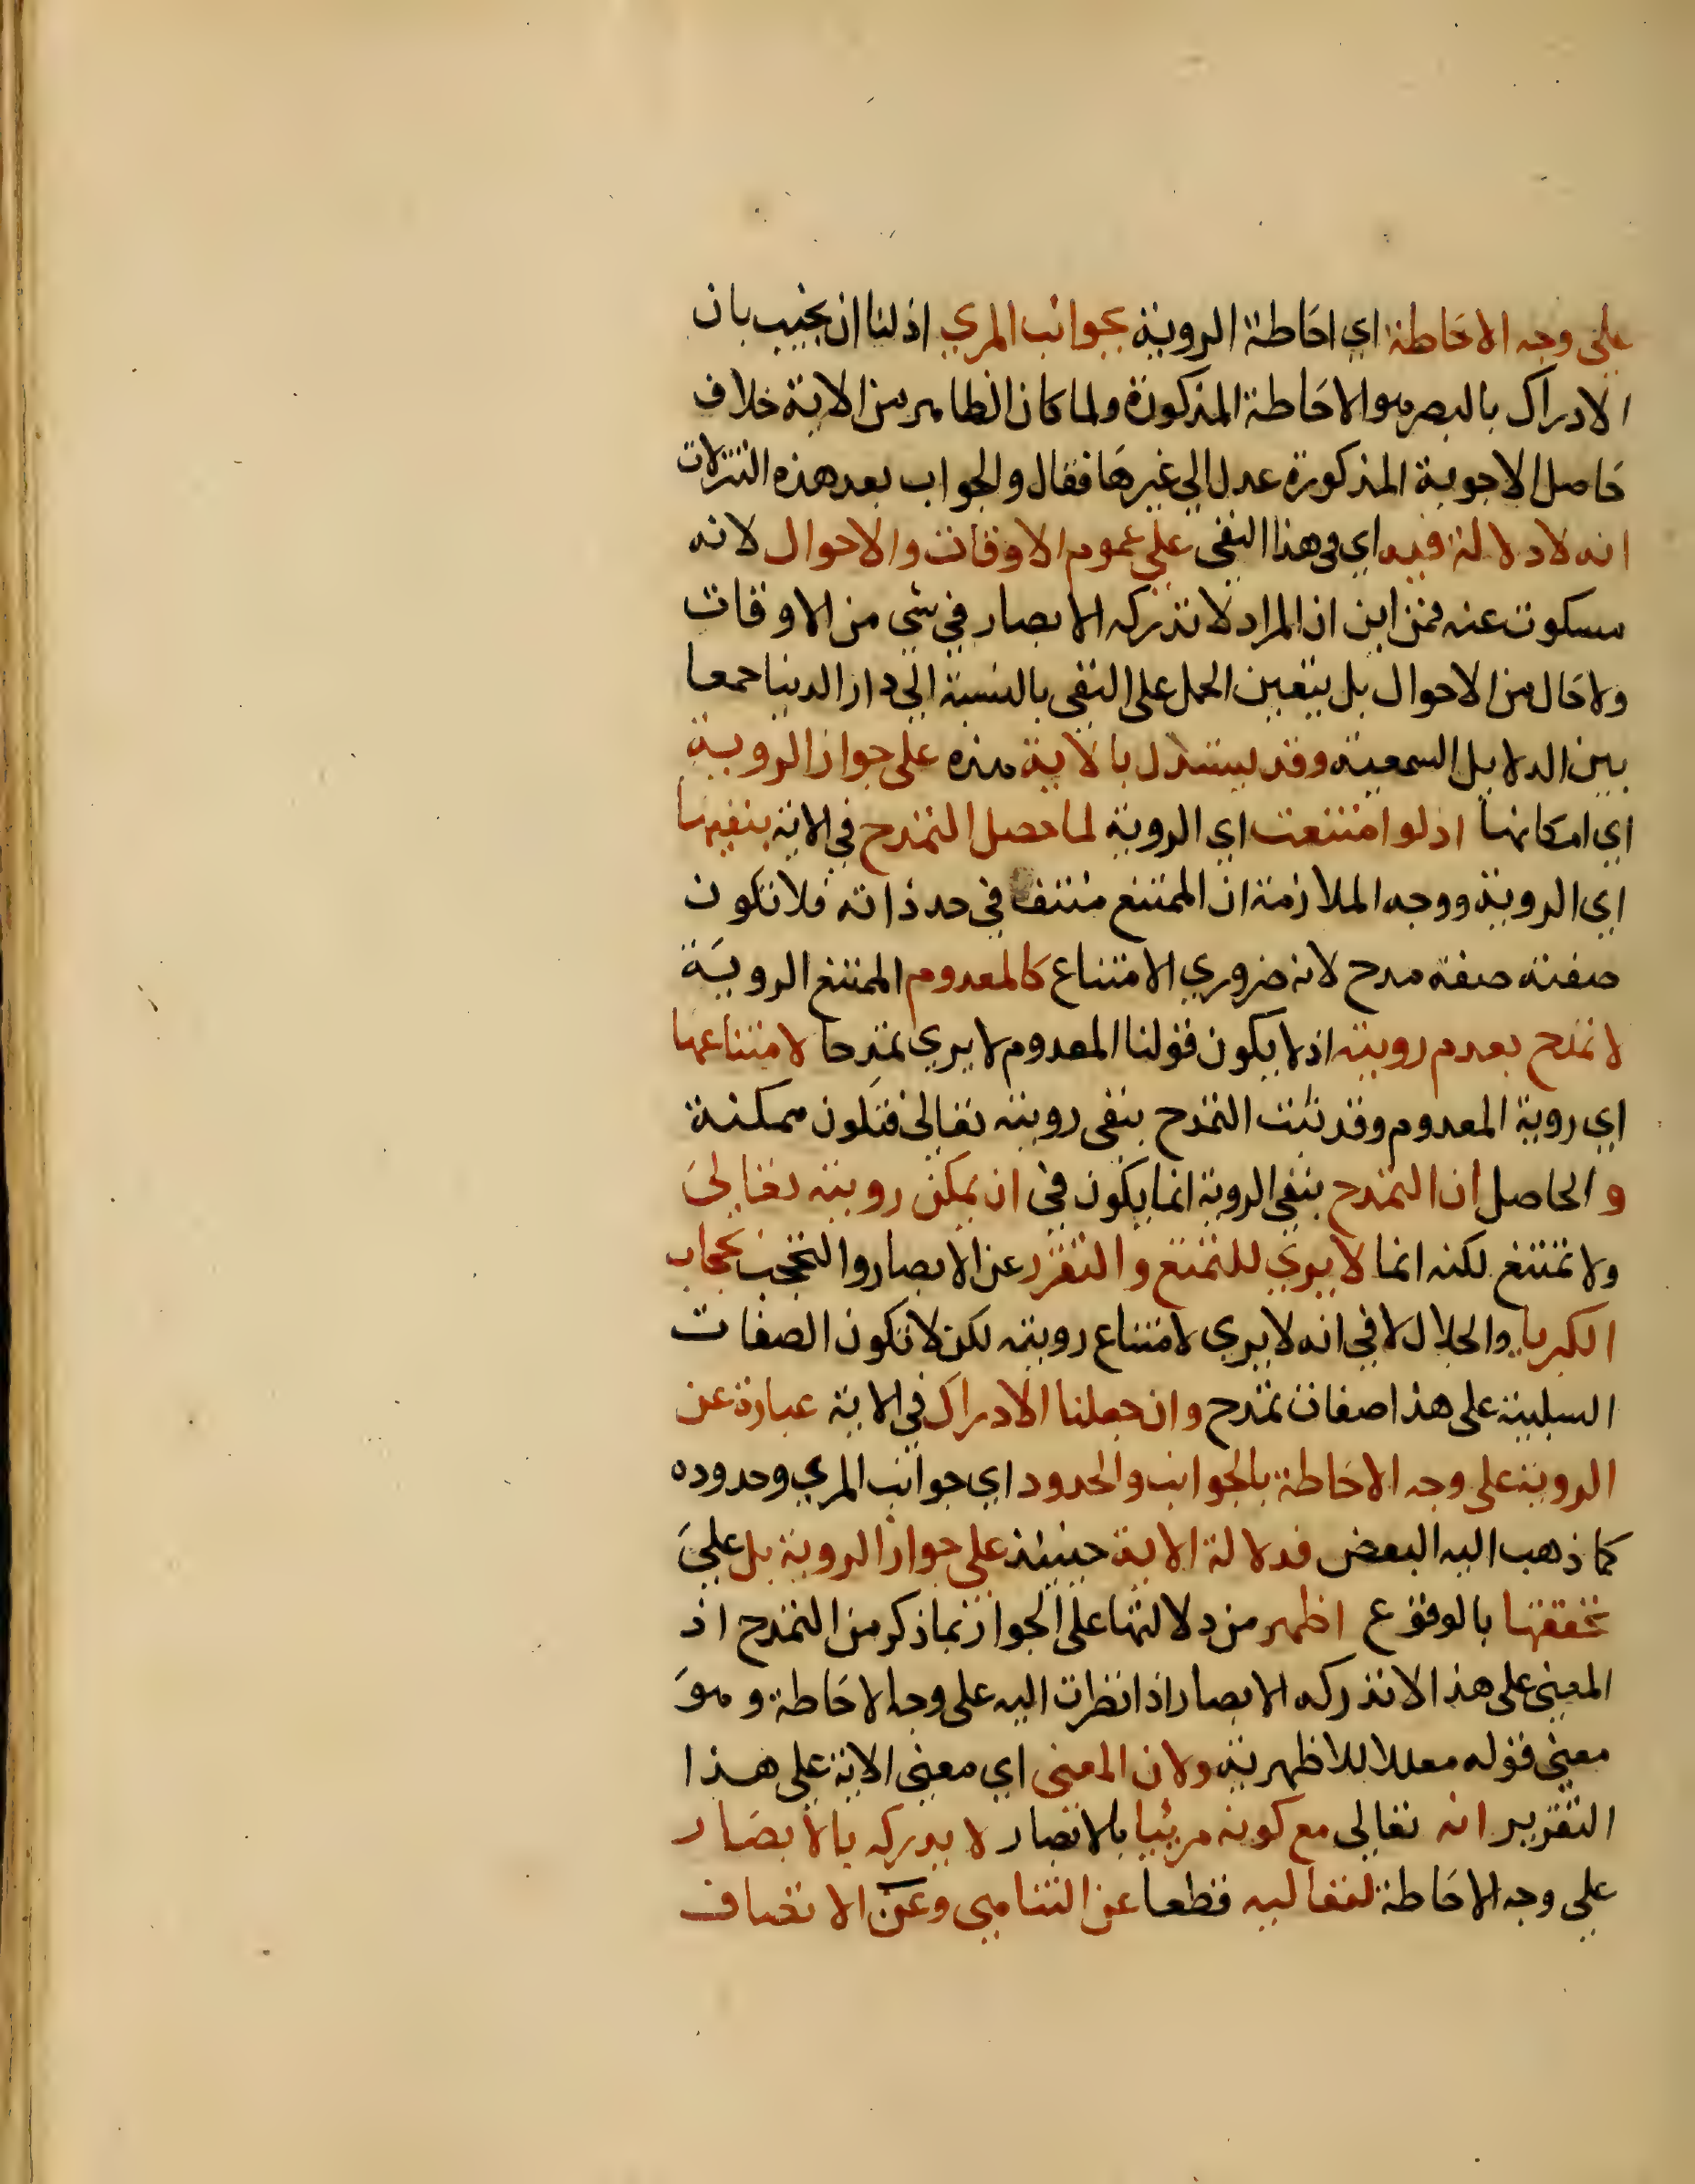 على وجه الاحاطة اي احاطة الروية بجوانب المري اذ لنا ان نجيب بان
الادراك بالبصر هو الاحاطة المذكورة ولما كان الظاهر من الاية خلاف
حاصل الاجوبة المذكورة عدل الي غيرها فقال والجواب بعد هذه التنزلات
انه لا دلالة فيه اي في هذا النفى علي عموم الاوقات والاحوال لانه
مسكوت عنه فمن اين ان المراد لا تدركه الابصار في شي من الاوقات
ولا حال من الاحوال بل يتعين الحمل على النفى بالنسبة الي دار الدنيا جمعا
بين الدلايل السمعية وقد يستدل بالاية هذه على جواز الروية
اي امكانها اذ لو امتنعت اي الروية لما حصل التمدح في الاية بنفيها
اي الروية ووجه الملازمة ان الممتنع منتف في حد ذاته فلا تكون
صفته صفة مدح لانه ضروري الامتناع كالمعدوم الممتنع الروية
لا تمدح بعدم رويته اذ لا يكون قولنا المعدوم لا يري تمدحا لامتناعها
اي روية المعدوم وقد ثبت التمدح بنفى رويته تعالى فتكون ممكنة
والحاصل ان التمدح بنفى الروية انما يكون في ان يمكن رويته تعالى
ولا تمتنع لكنه انما لا يري للتمنع والتعزز عن الابصار والتحجب بحجاب
الكبريا والجلال لا في انه لا يرى لامتناع رويته لكن لا تكون الصفات
السلبية على هذا صفات تمدح وان جعلنا الادراك في الاية عبارة عن
الروية على وجه الاحاطة بالجوانب والحدود اي جوانب المري وحدوده
كما ذهب اليه البعض فدلالة الاية حينئذ علي جواز الروية بل علي
تحققها بالوقوع اظهر من دلالتها على الجواز بما ذكر من التمدح اذ
المعنى على هذا لا تدركه الابصار اذا نظرت اليه على وجه الاحاطة وهو
معنى قوله معللا للاظهرية ولان المعنى اي معنى الاية علي هذا
التقرير انه تعالى مع كونه مرئيا بالابصار لا يدركه بالابصار
على وجه الاحاطة لتعاليه قطعا عن التناهى وعن الاتصاف